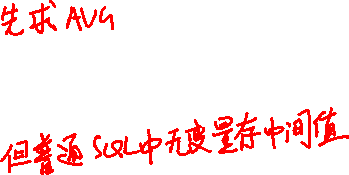 先求 AVG
但普通 SQL中无变量存中间值